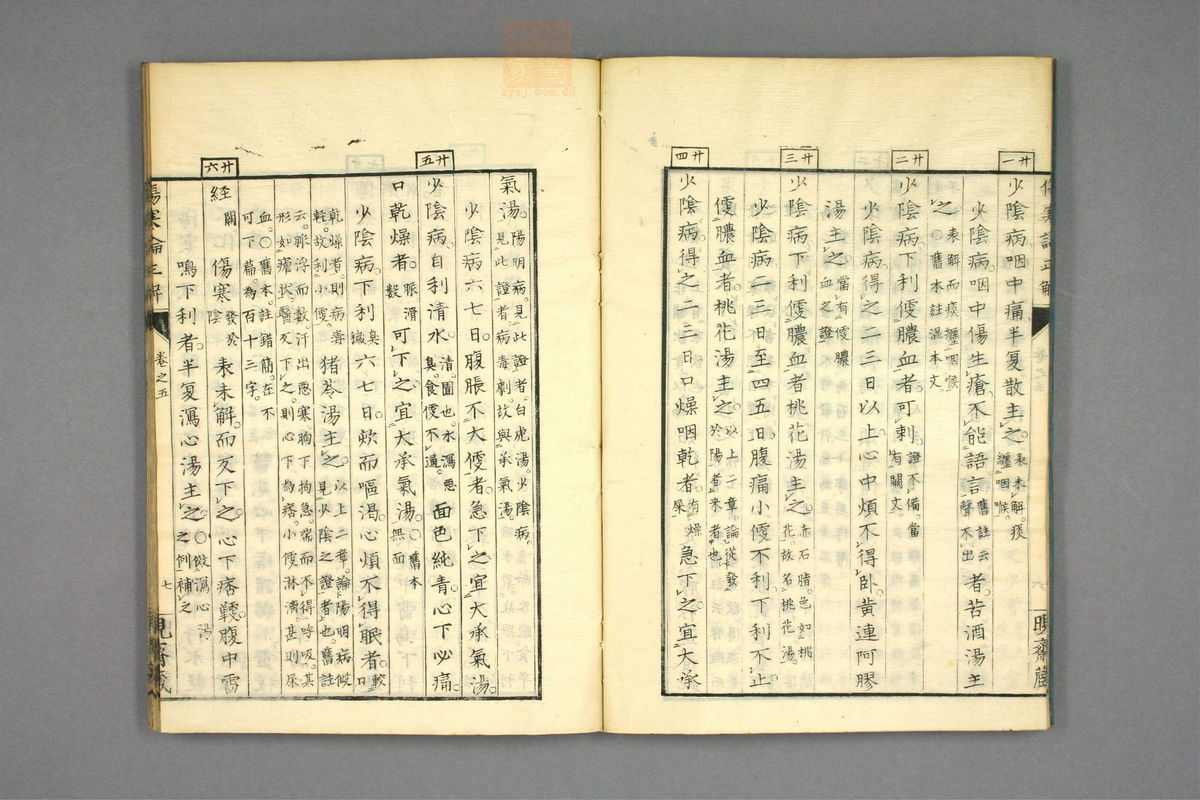 廿一
少陰病咽中痛半夏散主之。表未解。痰纏咽喉。
少陰病。咽中傷生瘡。不能語言舊註云聲不出者。苦酒湯主
之。表解而痰纏咽喉○舊本註混本文
廿二
少陰病下利便膿血者。可刺。證不備。當有闕文
少陰病。得之二三日以上。心中煩不得臥。黄連阿膠
湯主之。當有便膿血之證
廿三
少陰病。下利便膿血者桃花湯主之。赤石脂。色如桃花。故名桃花湯。
少陰病。二三日至四五日。腹痛小便不利下利不止
便膿血者。桃花湯主之。以上二章。論從發於陽者來者也
廿四
少陰病。得之二三日。口燥咽乾者。有燥屎急下之。宜大承
氣湯。陽明病。見此證者。白虎湯。少陰病。見此證者病毒劇。故與承氣湯。
少陰病六七日。腹脹不大便者。急下之宜大承氣湯。
廿五
少陰病。自利清水。清。圊也。水瀉惡臭。食便不通。面色純青。心下必痛。
口乾燥者。脈滑數可下之。宜大承氣湯。○舊本無面
少陰病。下利臭穢六七日。欬而嘔渴。心煩不得眠者。較口
乾燥者。則病毒輕。故利小便。猪苓湯主之。以上二章。論陽明病似見少陰之證者也。舊註
云。脈浮而數。汗出惡寒。胸下拘急。喘而不得呼吸。其形如瘧狀。醫反下之。則心下為痞。小便淋瀝。甚則尿
血。○舊本。註錯簡。在不可下篇。為百十三字。
廿六
経闕傷寒發於陰表未解。而反下之。心下痞鞕。腹中雷
鳴下利者。半夏瀉心湯主之。○倣瀉心湯之例補之
傷寒論正解
卷之五
七